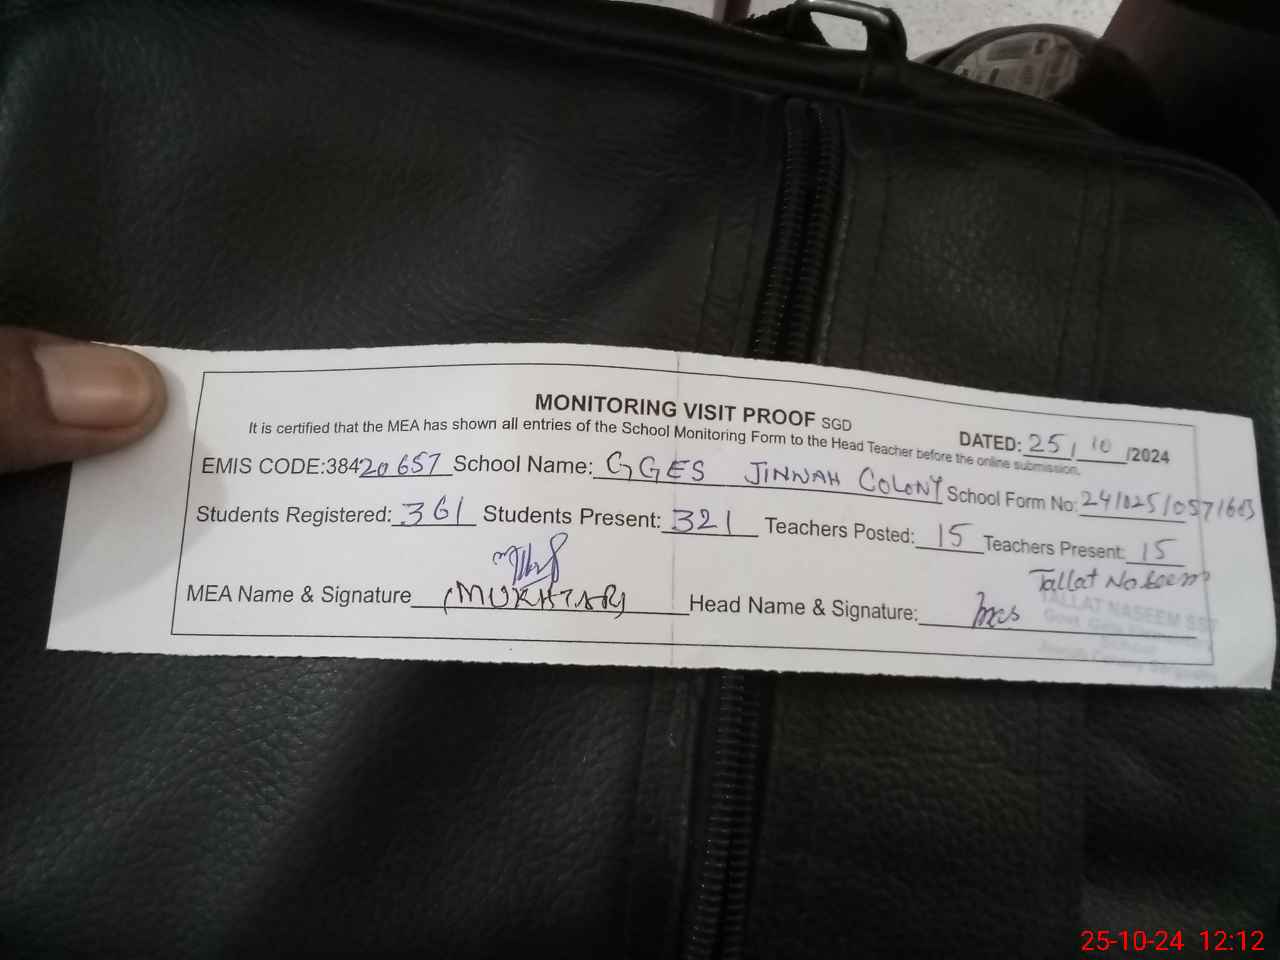 MONITORING VISIT PROOF SGD
It is certified that the MEA has shown all entries of the School Monitoring Form to the Head Teacher before the online submission.
DATED: 25/10/2024
EMIS CODE:38420657 School Name: GGES JINNAH COLONY School Form No: 241025105716
Students Registered: 361 Students Present: 321 Teachers Posted: 15 Teachers Present: 15
MEA Name & Signature (MUKHTAR) Head Name & Signature: Tallat Naseem
TALLAT NASEEM SST
Govt. Girls
25-10-24 12:12